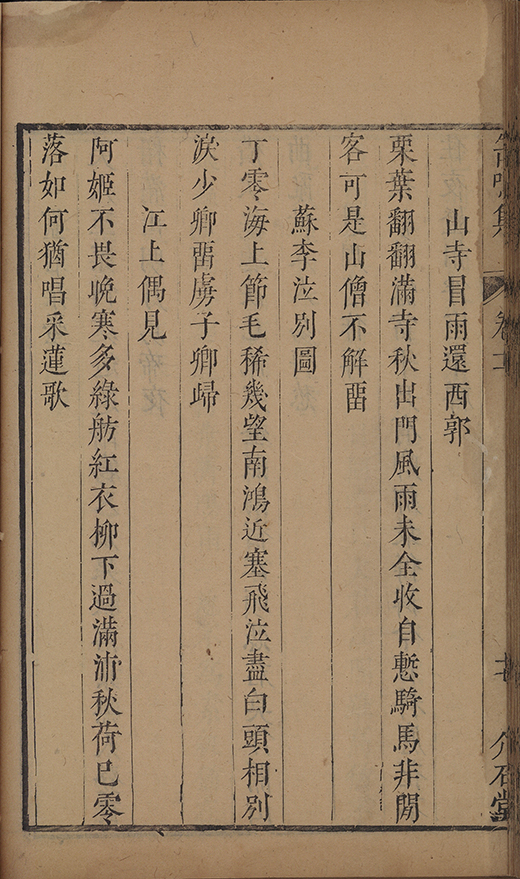 山寺冒雨還西郭
栗葉翻翻滿寺秋出門風雨未全收自慙騎馬非閒
客可是山僧不解畱
蘇李泣別圖
丁零海上節毛稀幾望南鴻近塞飛泣盡白頭相別
淚少卿畱虜子卿歸
江上偶見
阿姬不畏晚寒多綠舫紅衣柳下過滿浦秋荷已零
落如何猶唱采蓮歌
介石堂